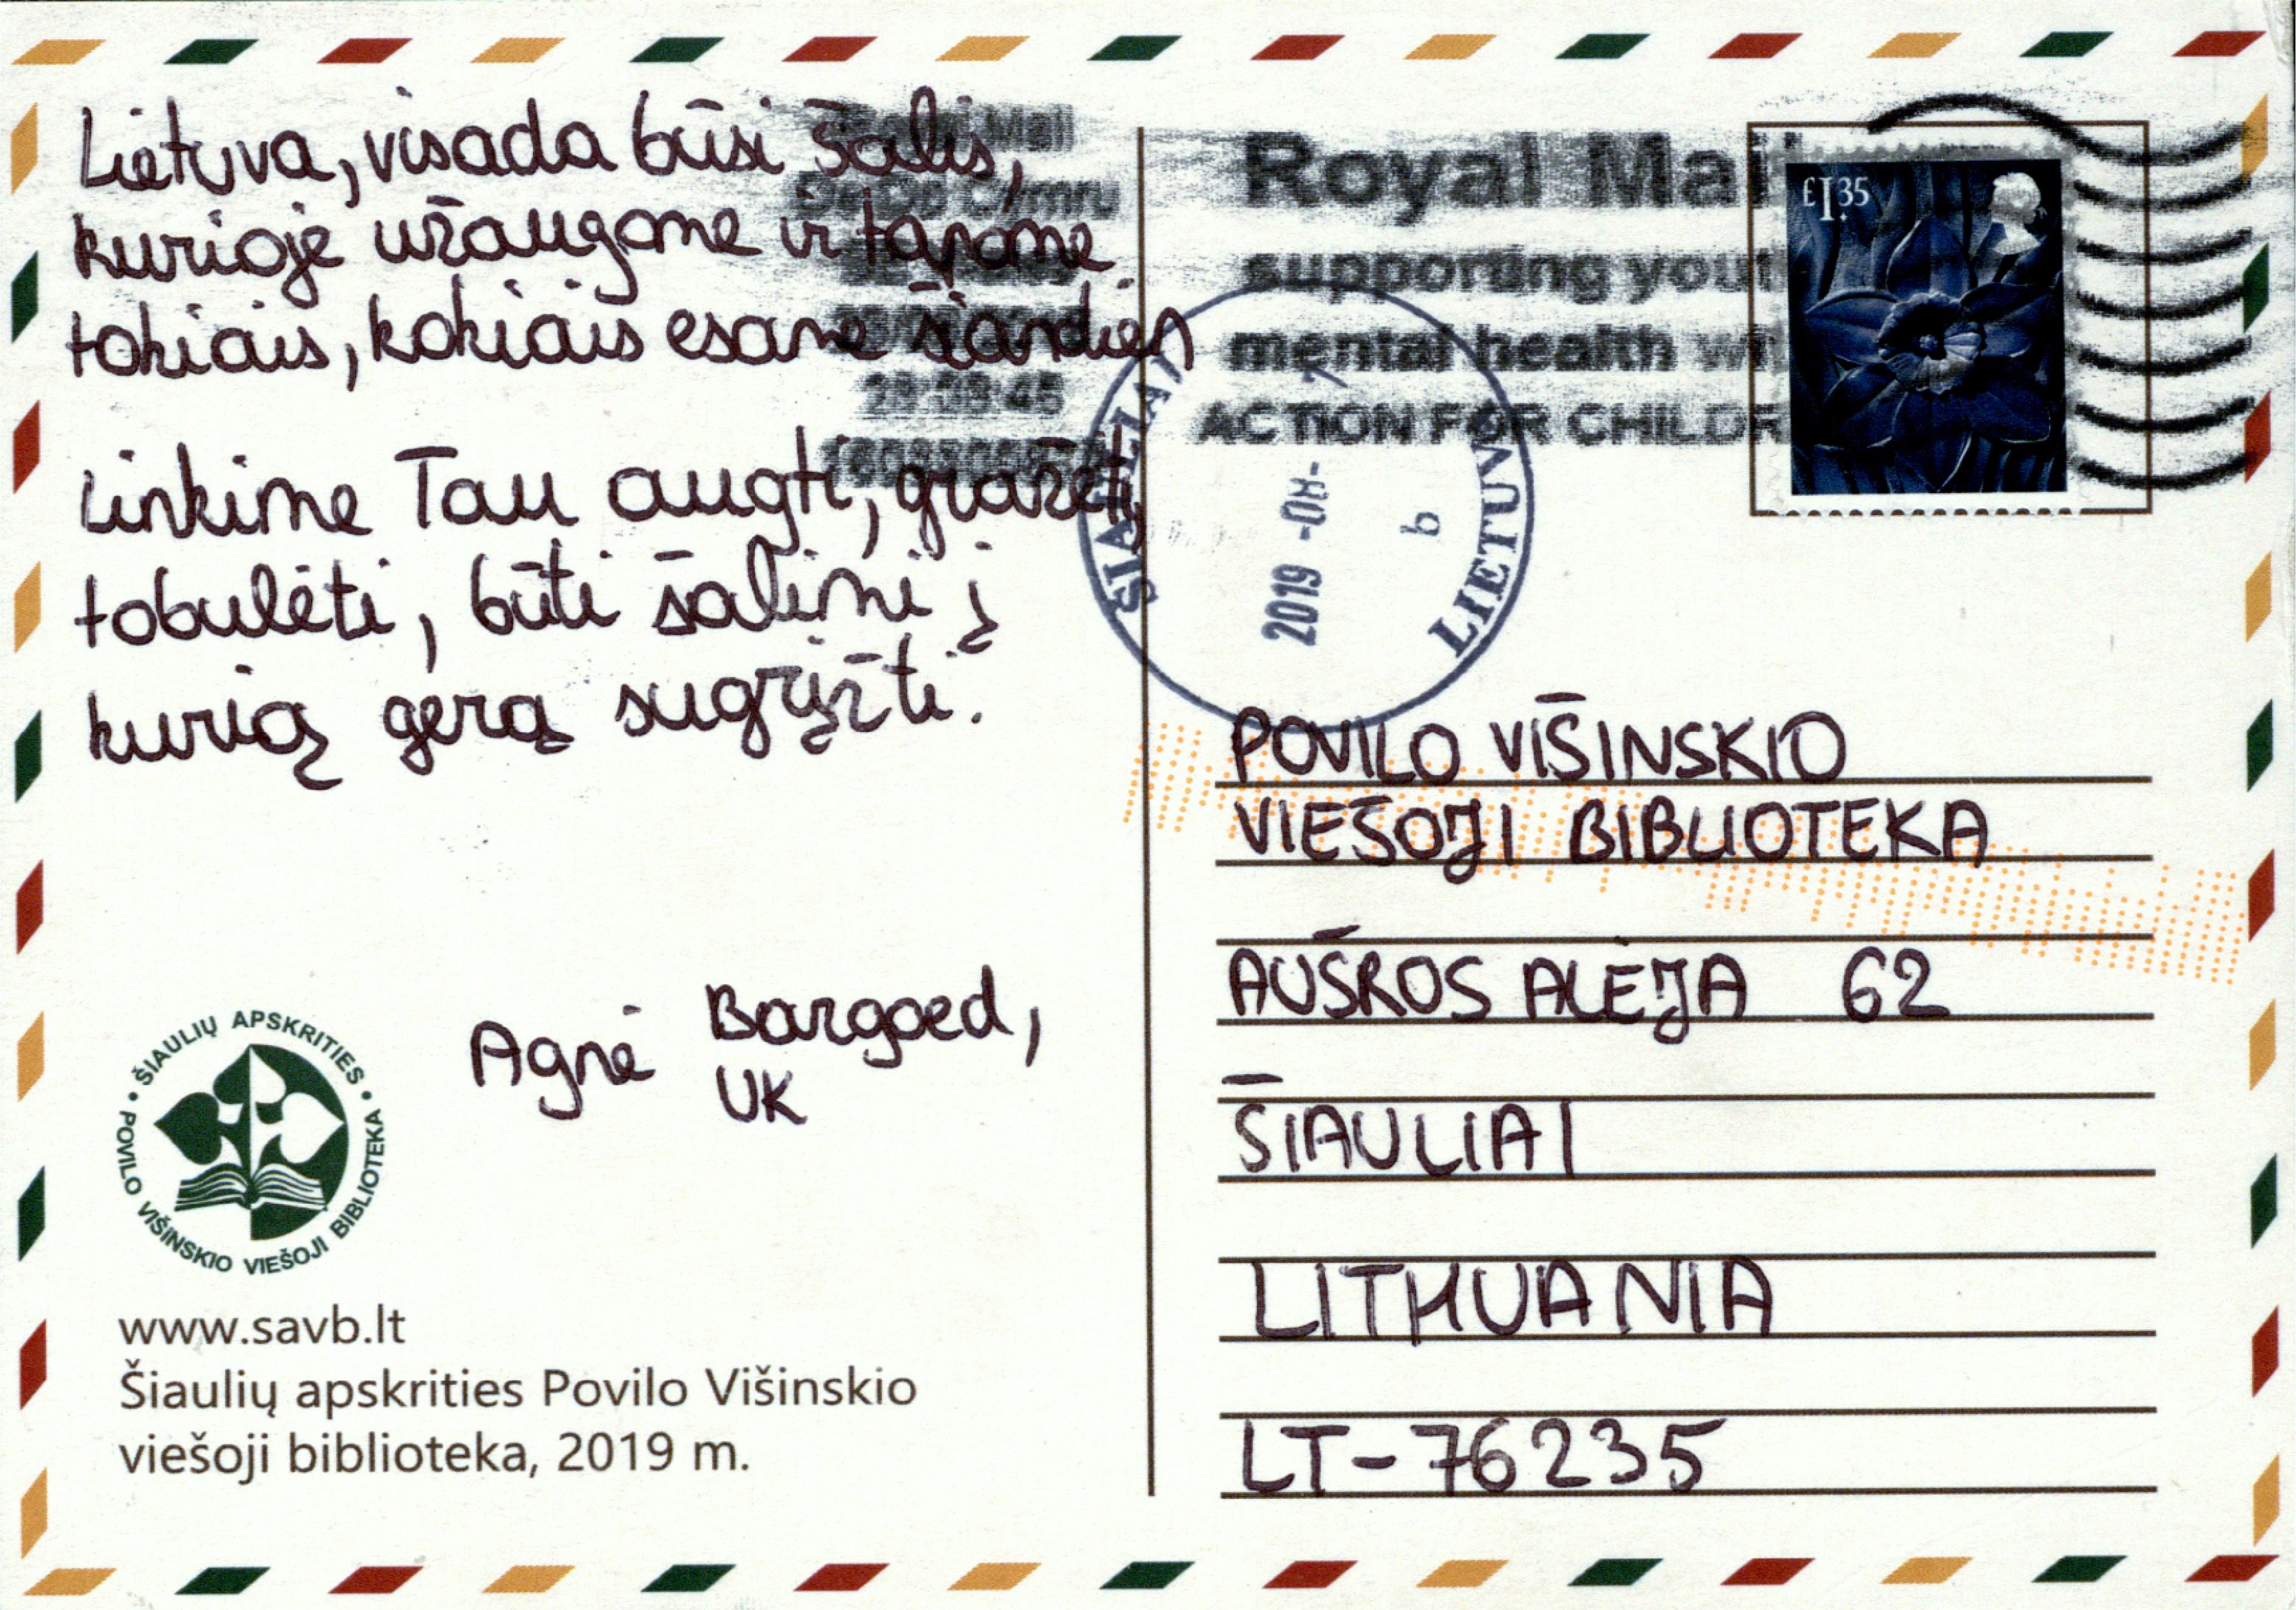 Lietuva, visada būsi šalis,
kurioje užaugome ir tapome
tokiais, kokiais esame šiandien
Linkime Tau augti, gražėti,
tobulėti, būti šalimi į
kurią gera sugrįžti.
Agnė Bargoed,
UK
ŠIAULIŲ APSKRITIES
POVILO VIŠINSKIO VIEŠOJI BIBLIOTEKA
www.savb.lt
Šiaulių apskrities Povilo Višinskio
viešoji biblioteka, 2019 m.
Royal Mail
Cymru
Royal Mail
supporting youth
mental health with
ACTION FOR CHILDR
£1.35
ŠIAULIAI
2019 -08-
b
LIETUVA
POVILO VIŠINSKIO
VIEŠOJI BIBLIOTEKA
AUŠROS ALĖJA 62
ŠIAULIAI
LITHUANIA
LT-76235